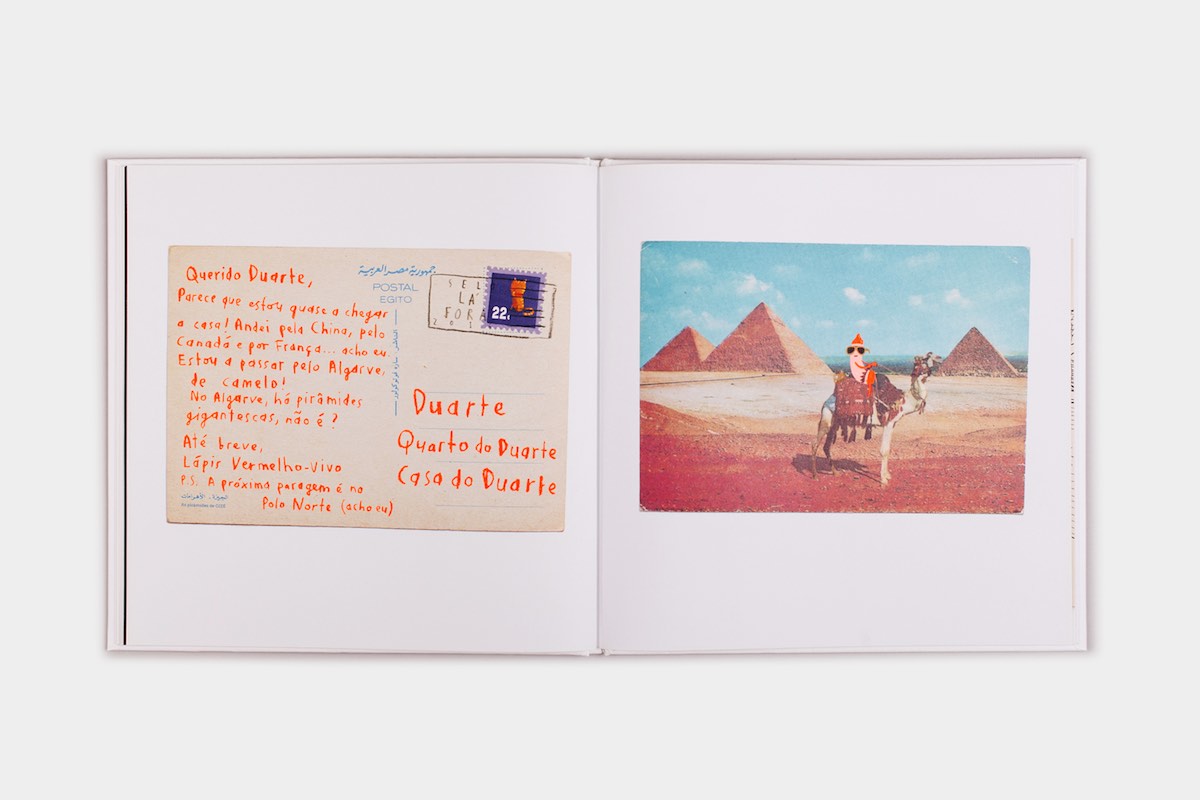 Querido Duarte,
Parece que estou quase a chegar
a casa! Andei pela China, pelo
Canadá e por França... acho eu.
Estou a passar pelo Algarve,
de camelo!
No Algarve, há pirâmides
gigantescas, não é?
Até breve,
Lápis Vermelho-Vivo
P.S. A próxima paragem é no
Polo Norte (acho eu)
جمهورية مصر العربية
POSTAL
EGITO
22
Duarte
Quarto do Duarte
Casa do Duarte